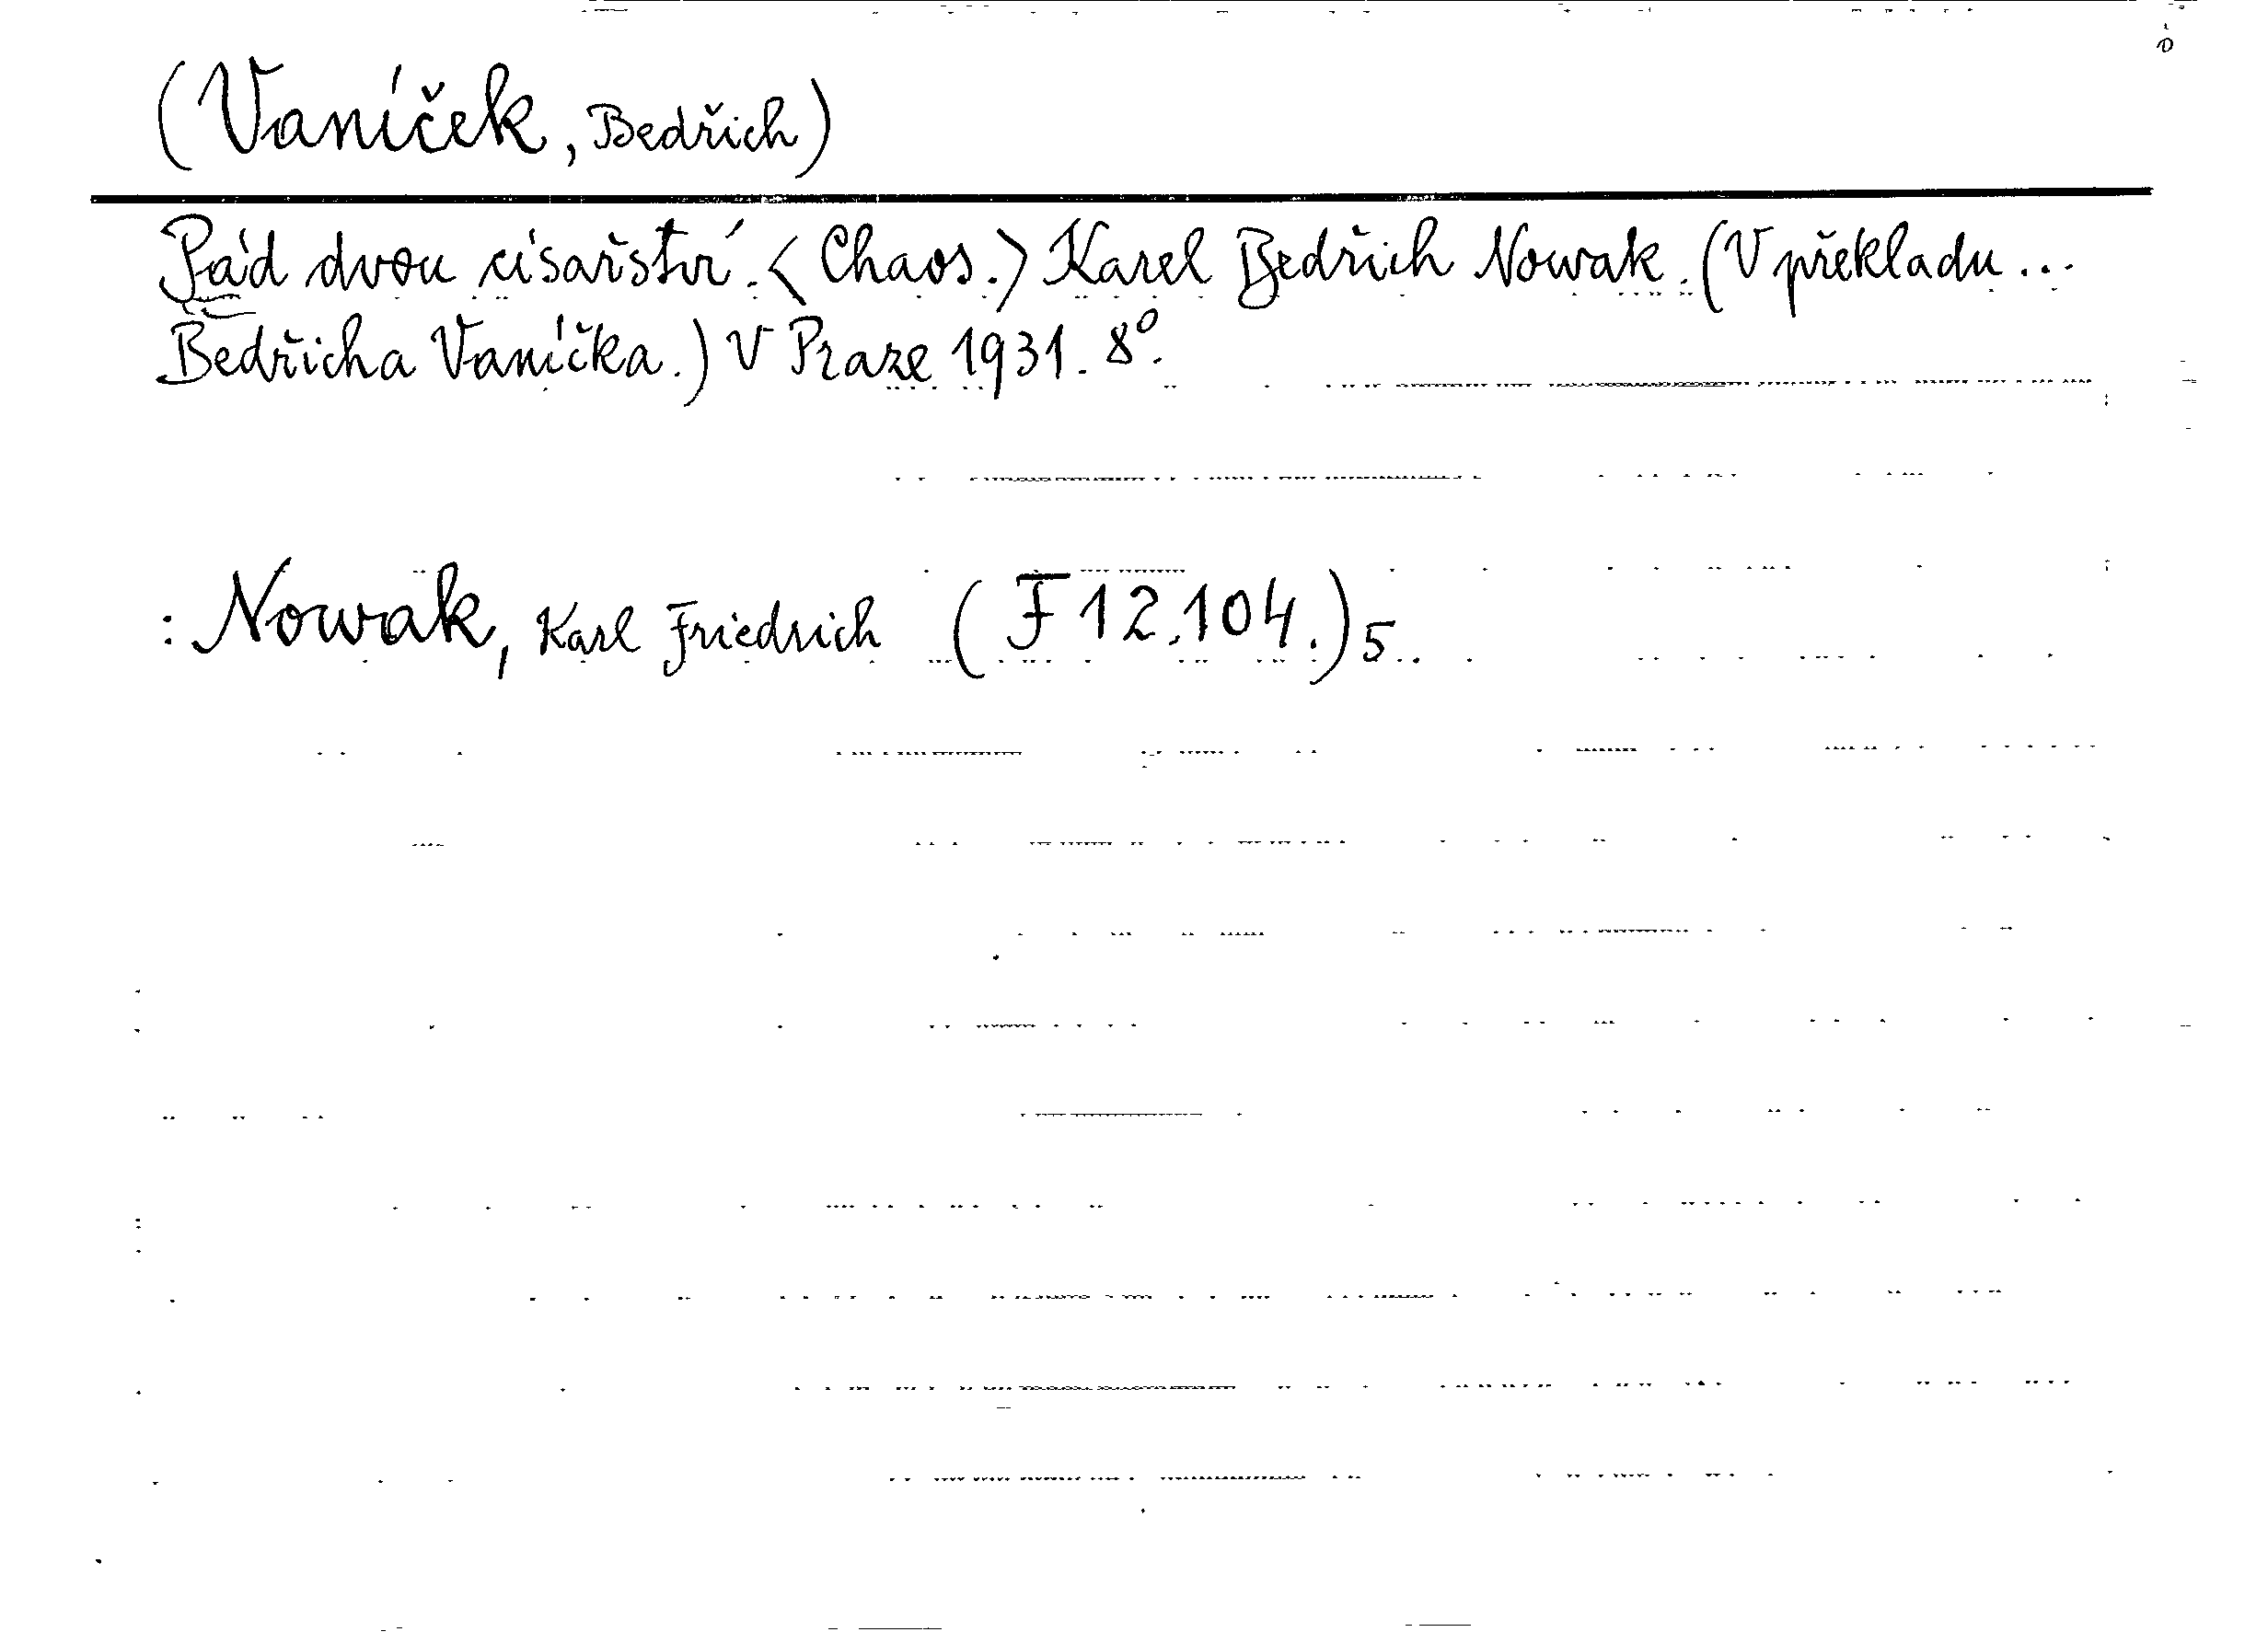 (Vaníček, Bedřich)
Pád dvou císařství. <Chaos.> Karel Bedřich Nowak. (V překladu...
Bedřicha Vaníčka.) V Praze 1931. 8°.
: Nowak, Karl Friedrich (F 12.104.)5.